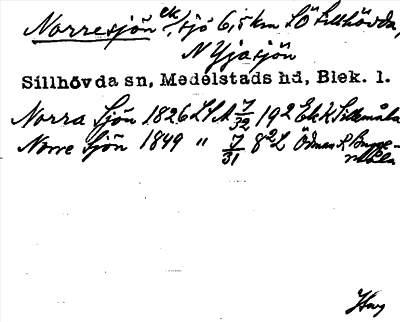 Norresjön ek, sjö 6,5 km SÖ Sillhövda,
N Yjasjön
Sillhövda sn, Medelstads hd, Blek. l.
Norra Sjön 1826 LSA J/32 19 2 Ek K Silkemåla
Norre Sjön 1849 " J/31 8 2 L Ödman R Bugge-
måla